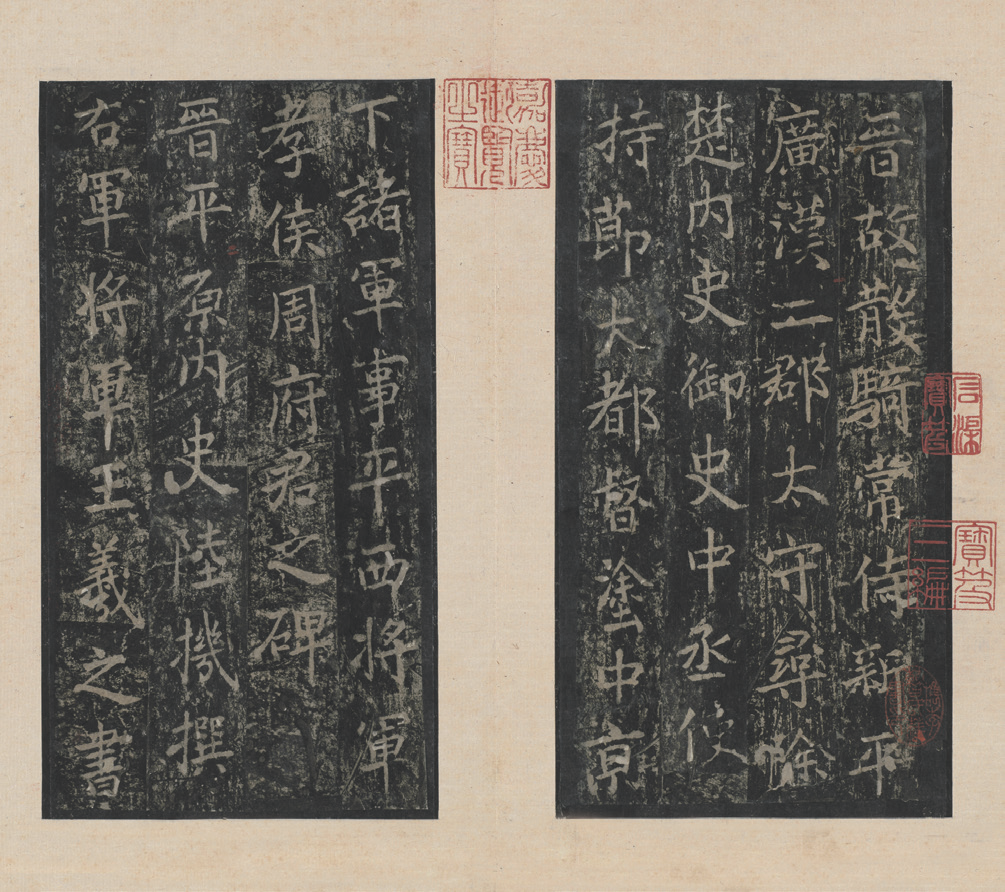 晉故散騎常侍新平
廣漢二郡太守尋除
楚內史御史中丞使
持節大都督塗中京
下諸軍事平西將軍
孝侯周府君之碑
晉平原內史陸機撰
右軍將軍王羲之書
嘉慶御覽之寶
寶笈三編